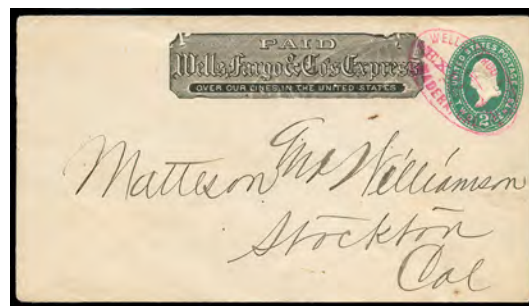 PAID
Wells Fargo & Co's Express
OVER OUR LINES IN THE UNITED STATES
WELLS
EX
UNITED STATES POSTAGE
TWO CENTS
2
Matteson And Williamson
Stockton
Cal